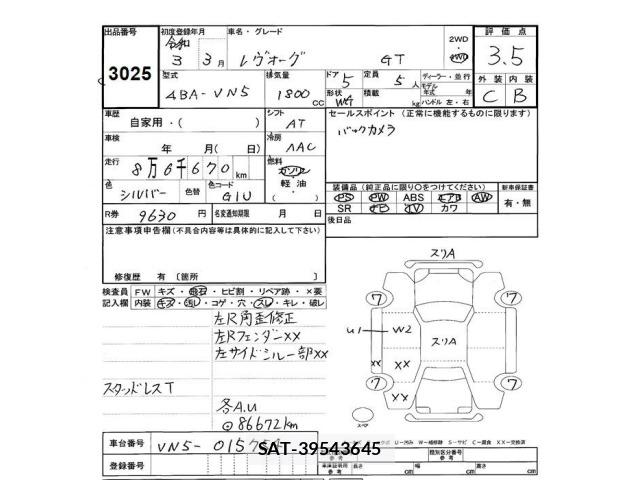 出品番号 初度登録年月 車名・グレード 2WD 評価点
3025 令和 3 3月 レヴォーグ GT 4WD 3.5
型式 排気量 ドア 5 定員 5人 ディーラー・並行 外装 内装
4BA-VN5 1800cc 形状 WG 積載 kg モデル年式 年 ハンドル 左・右 C B
車歴 自家用・( ) シフト AT セールスポイント (正常に機能するものに限ります)
車検 年 月( 日) 冷房 AAC バックカメラ
走行 8万6千670km 燃料 ガソリン 軽油・( )
色 シルバー 色替 色コード G1U 装備品 (純正品に限り○をつけてください) 新車保証書
PS PW ABS エアB AW 有・無
R券 9630円 名変通知期限 月 日 SR ナビ TV カワ
注意事項申告欄(不具合内容等は具体的に記入して下さい) 後日品
修復歴 有 〔箇所 〕
検査員 FW キズ・飛石・ヒビ割・リペア跡・×要
記入欄 内装 キズ・汚レ・コゲ・穴・スレ・キレ・破レ
左R角歪修正
左Rフェンダーxx
左サイドシルー部xx
スタッドレスT
各A.U
⊙86672km
スリA
ワ ワ
U1 W2 スリA
xx xx
ワ xx ワ
スリA
スペア
車台番号 VN5-015
SAT-39543645
登録番号
類別区分番号
参考
車庫証明用 参考 長さ cm 幅 cm 高さ cm